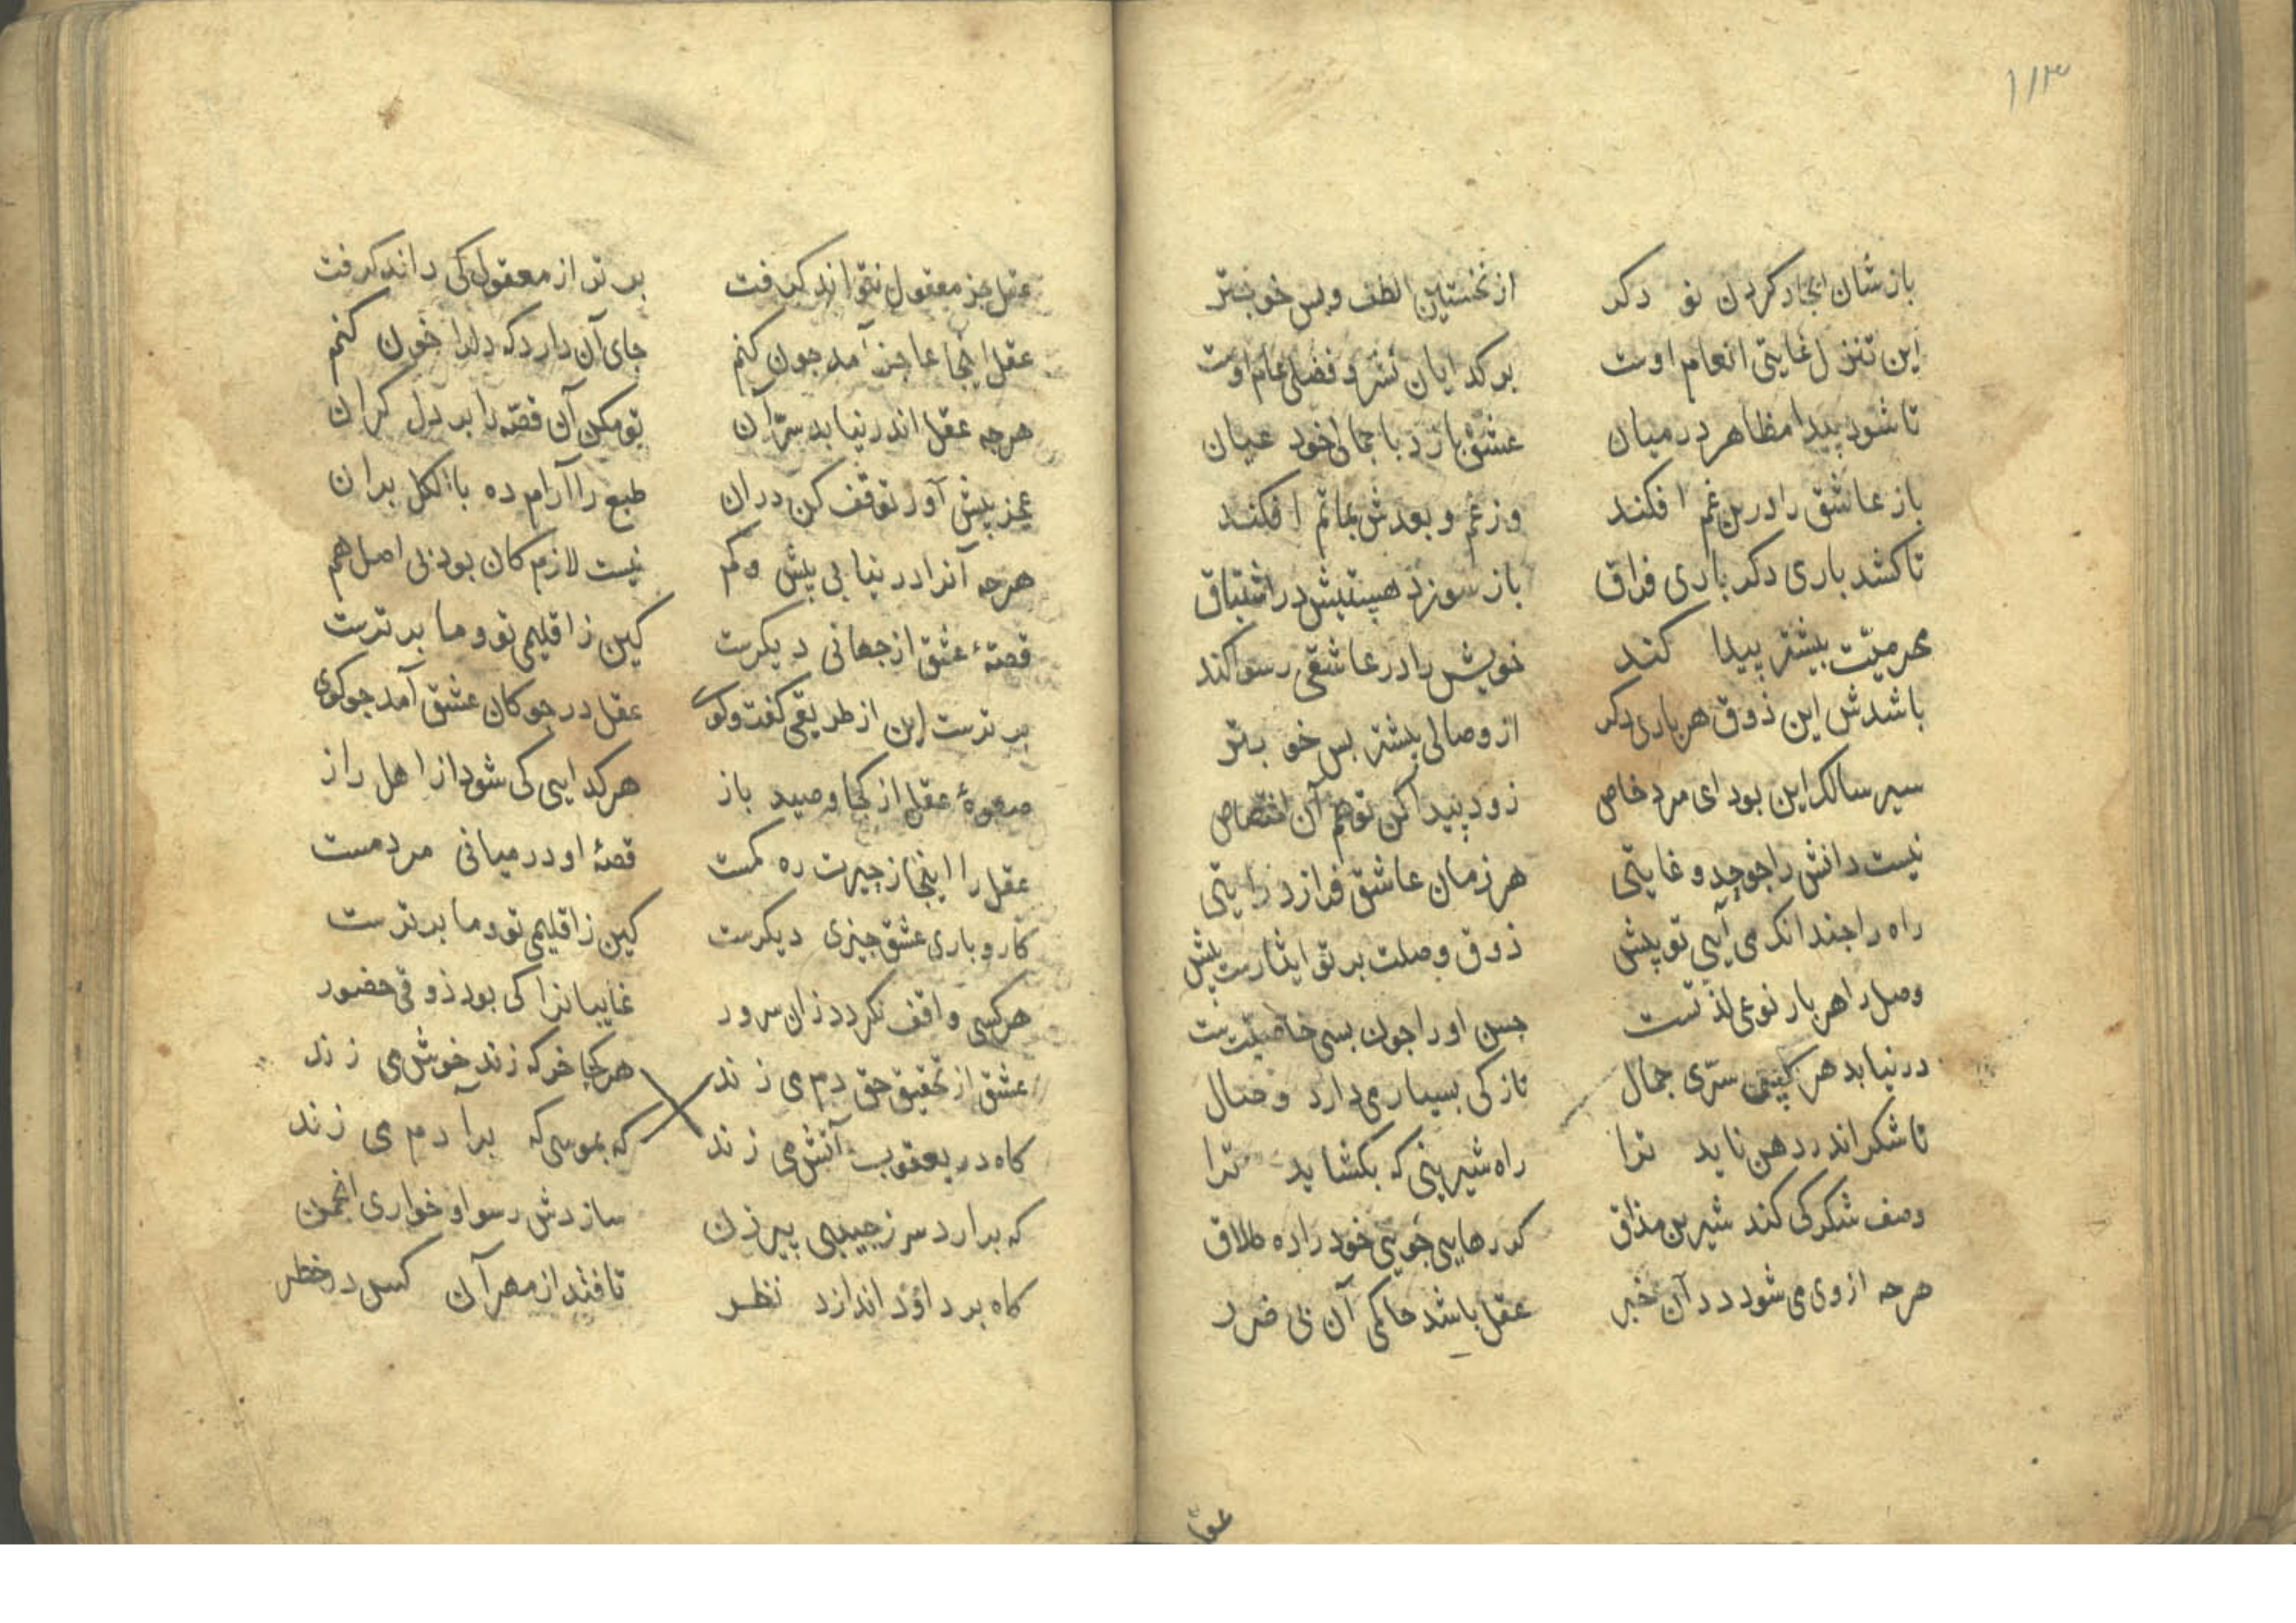 ۱۱۳
بازشان ایجاد کردن نو دکر از نخستین الطف و بس خوبتر
این تنزل غایتی انعام اوست بر کدایان نشر و فضلی عام اوست
تا شود پیدا مظاهر در میان عشق بازد با جمالی خود عیان
باز عاشق را درین غم افکند وز غم و بعدش بماتم افکند
تا کشد باری دکر باری فراق باز سوزد هستیش در اشتیاق
محرمیّت بیشتر پیدا کند خویش را در عاشقی رسوا کند
باشدش این ذوق هر باری دکر از وصالی بیشتر بس خوبتر
سیر سالک این بود ای مرد خاص زود پیدا کن تو هم آن اختصاص
نیست دانش را جو حد و غایتی هر زمان عاشق فرازد رایتی
راه را جندانک می آیی تو پیش ذوق وصلت بر تو ایثارست بیش
وصل را هر بار نوعی لذتست حسن او را جون بسی خاصیّتست
در نیابد هر سرّی جمال نازکی بسیار می دارد وصال
تا شکر اندر دهن ناید ترا راه شیرینی که بکشاید ترا
وصف شکر کی کند شیرین مذاق کر رهایی جویی خود را ده طلاق
هرجه از وی می شود در آن خبر عقل باشد حاکمی آن بی ضرر
عقل
عقل جز معقول نتواند کرفت برتر از معقول کی داند کرفت
عقل اینجا عاجز آمد جون کنم جای آن دارد که دلرا خون کنم
هرجه عقل اندر نیابد سرّ آن تو مکن آن قصّه را بر دل کران
عجز پیش آور توقف کن دران طبع را آرام ده بالکل بران
هرجه آنرا در نیابی بیش و کم نیست لازم کان بود بی اصل هم
قصّهٔ عشق از جهانی دیکرست کین ز اقلیمی تو و ما برترست
برترست این از طریقی کفت وکوی عقل در جوکان عشق آمد جو کوی
صعوهٔ عقل از کجا و صید باز هر کدایی کی شود از اهل راز
عقل را اینجا ز حیرت ره کمست قصهٔ او در میانی مردمست
کار و باری عشق جیزی دیکرست کین ز اقلیمی تو و ما برترست
هر کسی واقف نکردد زان سرور غایبانرا کی بود ذوقی حضور
عشق از تحقیق حق دم می زند هر کجا خرکه زند خوش می زند
کاه در یعقوب آتش می زند که بموسی که برآدم می زند
که برارد سر ز جیبی پیرزن سازدش رسوا و خواری انجمن
کاه بر داوُد اندازد نظر تا فتد از مهر آن کس در خطر